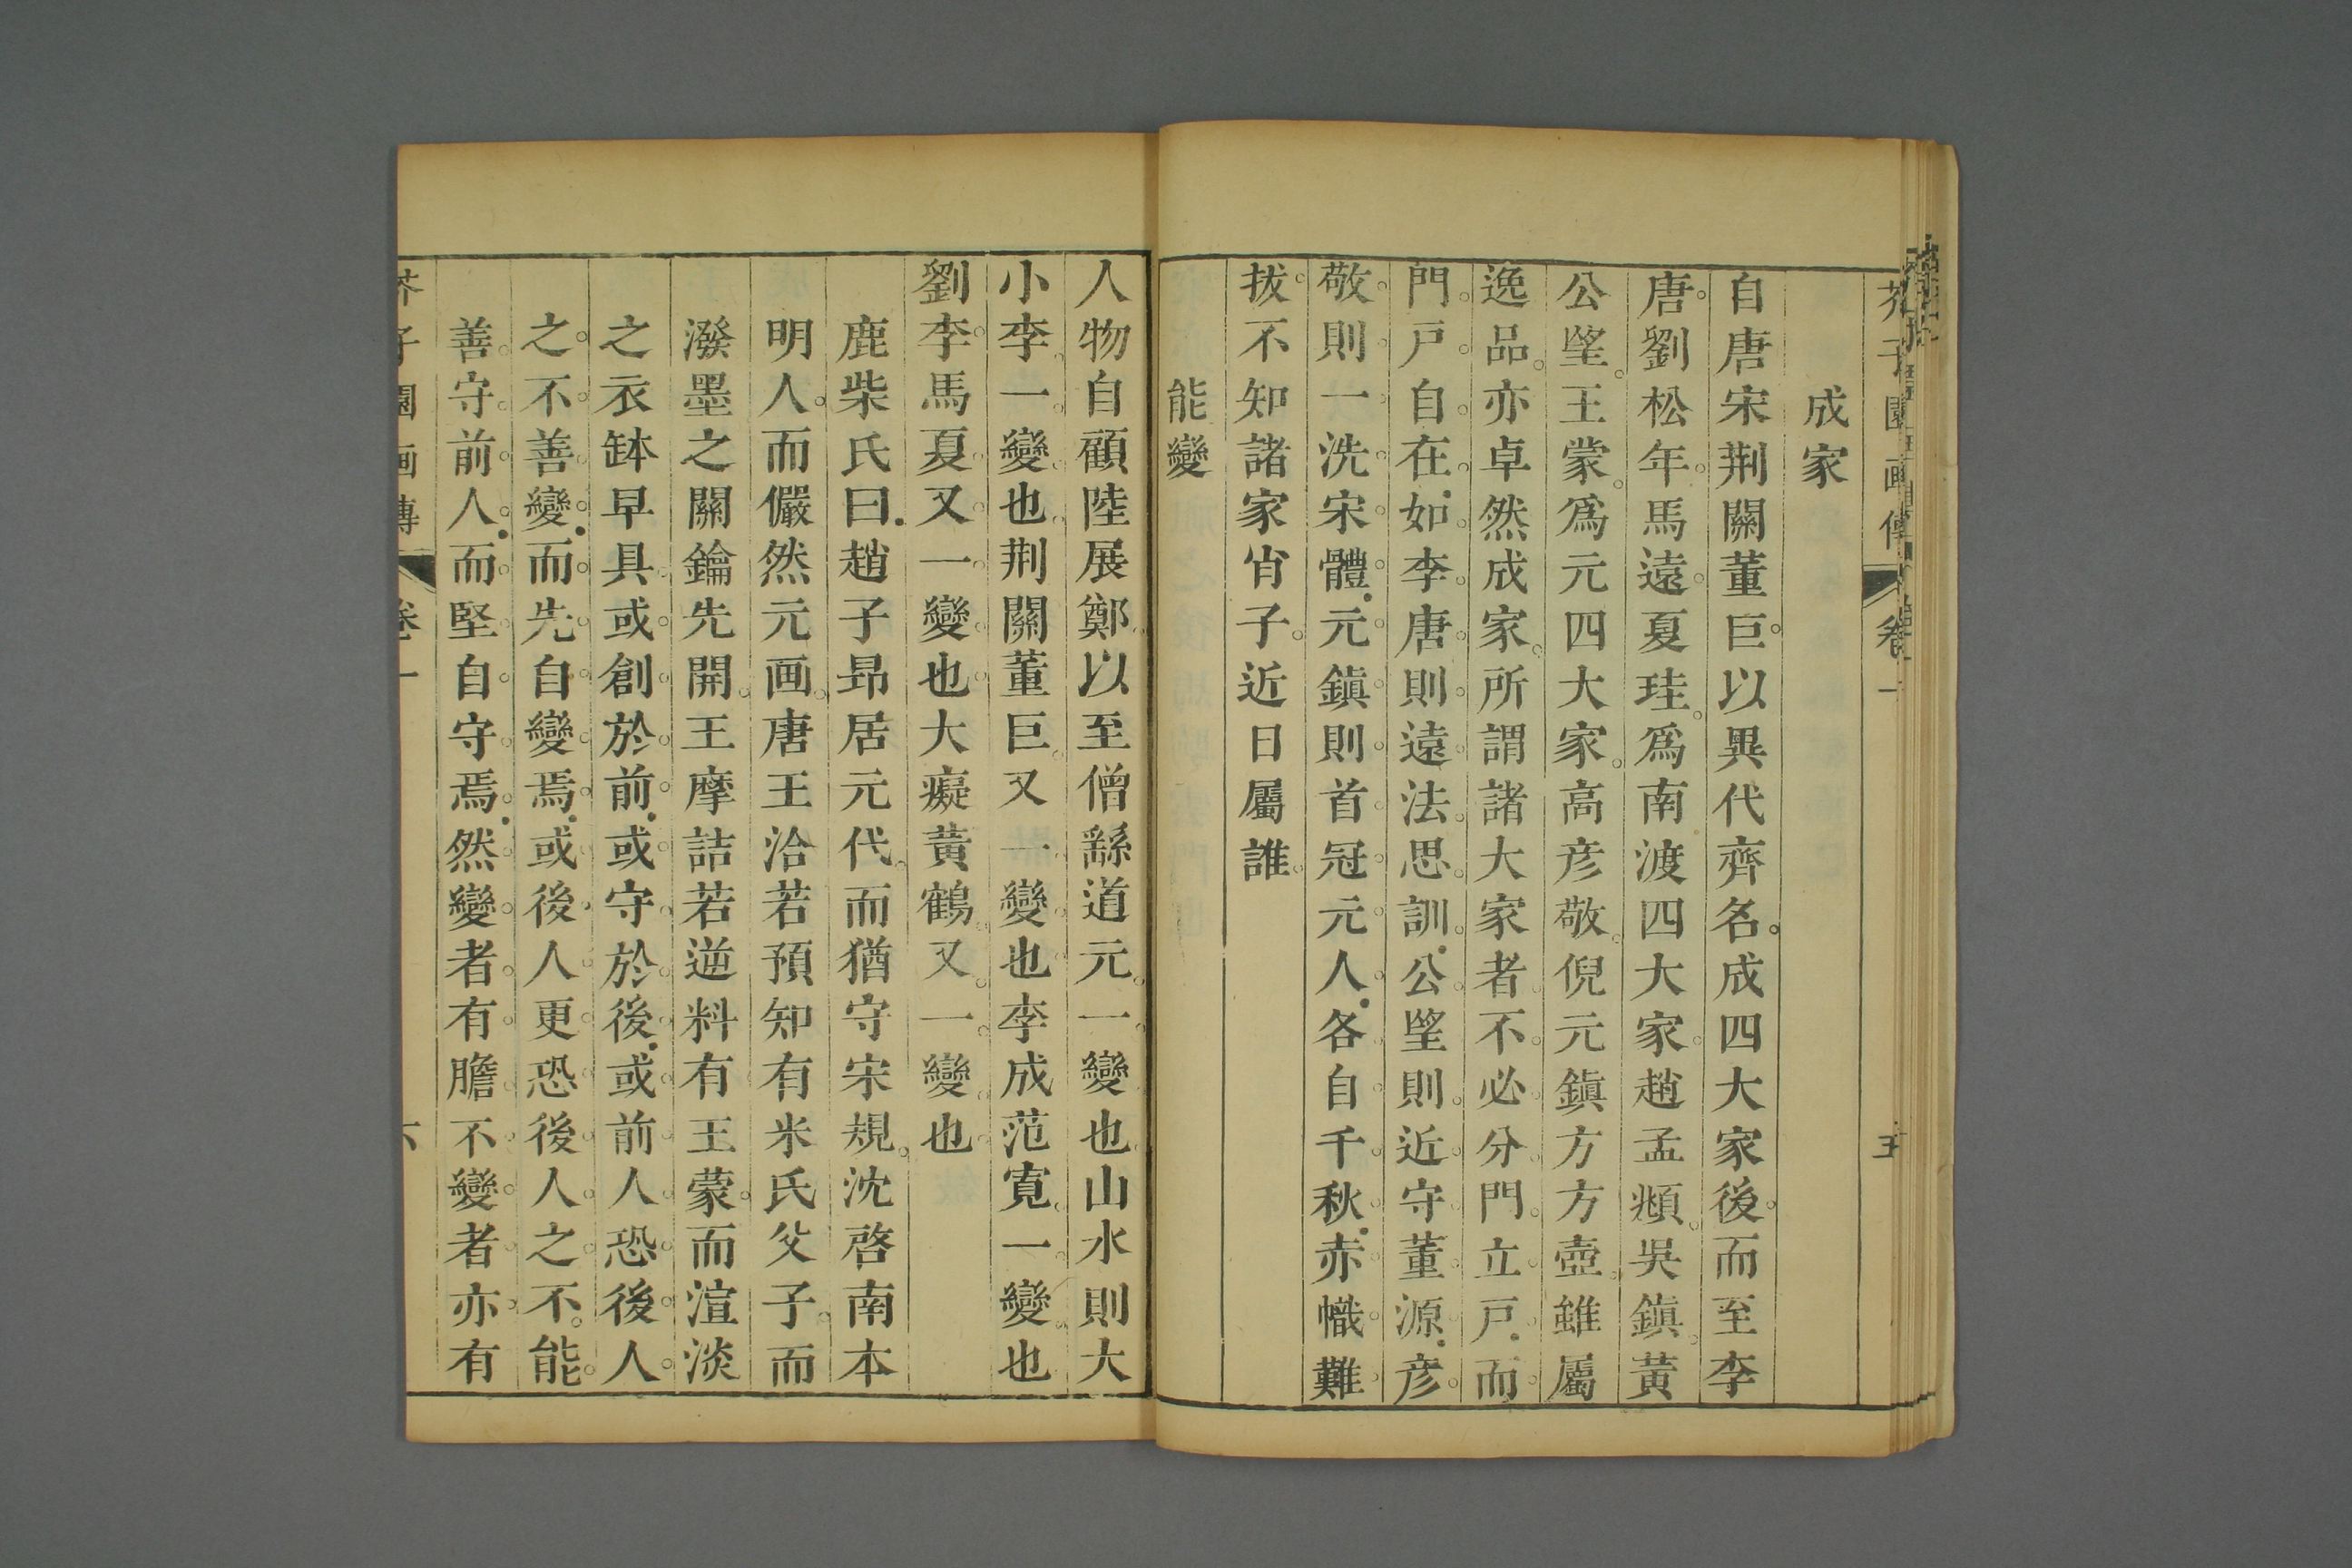 芥子園画傳 卷一 五
成家
自唐宋荆關董巨以異代齊名成四大家後而至李
唐劉松年馬遠夏珪爲南渡四大家趙孟頫吳鎭黃
公望王蒙爲元四大家高彦敬倪元鎭方方壺雖屬
逸品亦卓然成家所謂諸大家者不必分門立戸而
門戸自在如李唐則遠法思訓公望則近守董源彦
敬則一洗宋體元鎭則首冠元人各自千秋赤幟難
拔不知諸家肖子近日屬誰
能變
人物自顧陸展鄭以至僧繇道元一變也山水則大
小李一變也荆關董巨又一變也李成范寬一變也
劉李馬夏又一變也大癡黃鶴又一變也
鹿柴氏曰趙子昻居元代而猶守宋規沈啓南本
明人而儼然元画唐王洽若預知有米氏父子而
潑墨之關鑰先開王摩詰若逆料有王蒙而渲淡
之衣缽早具或創於前或守於後或前人恐後人
之不善變而先自變焉或後人更恐後人之不能
善守前人而堅自守焉然變者有膽不變者亦有
芥子園画傳 卷一 六